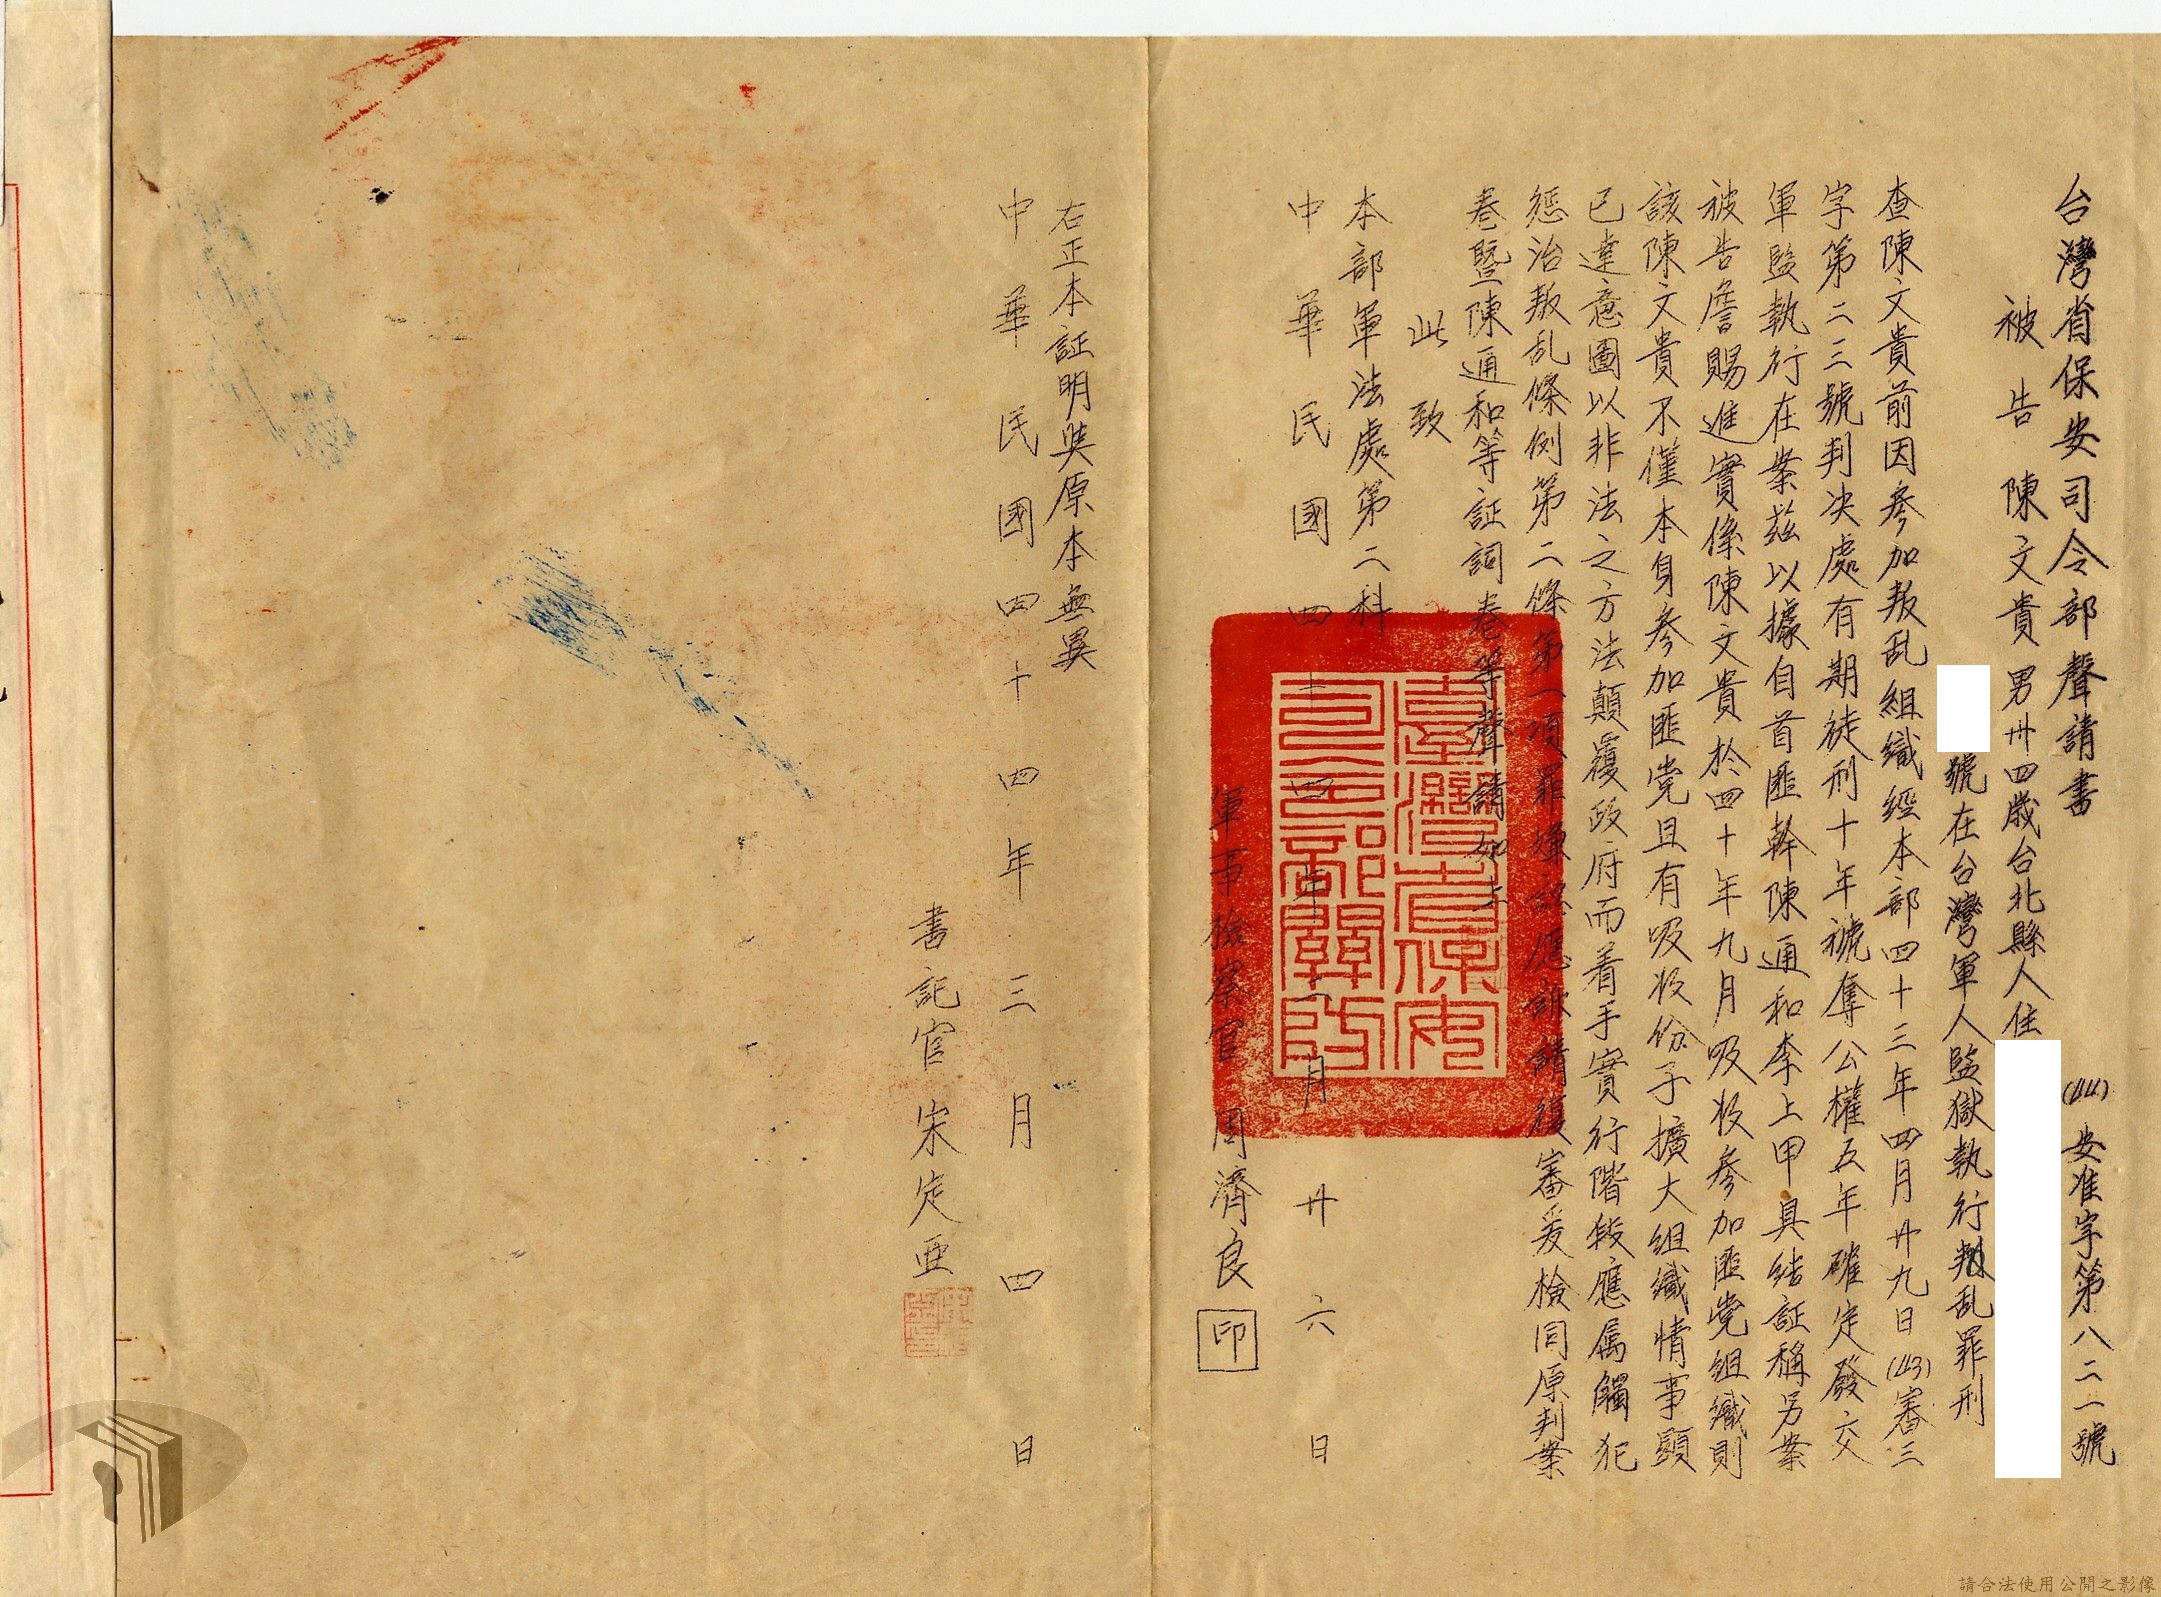 台灣省保安司令部聲請書
(44)安准字第八二一號
被告 陳文貴 男卅四歲台北縣人住
號在台灣軍人監獄執行叛乱罪刑
查陳文貴前因參加叛乱組織經本部四十三年四月廿九日(43)審三
字第二三號判决處有期徒刑十年褫奪公權五年確定發交
軍監執行在案茲以據自首匪幹陳通和李上甲具結証稱另案
被告詹賜進實係陳文貴於四十年九月吸收參加匪党組織則
該陳文貴不僅本身參加匪党且有吸收份子擴大組織情事顕
已達意圖以非法之方法顛覆政府而着手實行階段應属觸犯
惩治叛乱條例第二條第一項罪嫌認應訴請復審爰檢同原判案
卷暨陳通和等証詞卷等聲請如上
此致
本部軍法處第二科
中華民國四十四年二月廿六日
軍事檢察官 周濟良 印
臺灣省保安
司令部關防
右正本証明與原本無異
中華民國四十四年三月四日
書記官宋定亜
請合法使用公開之影像